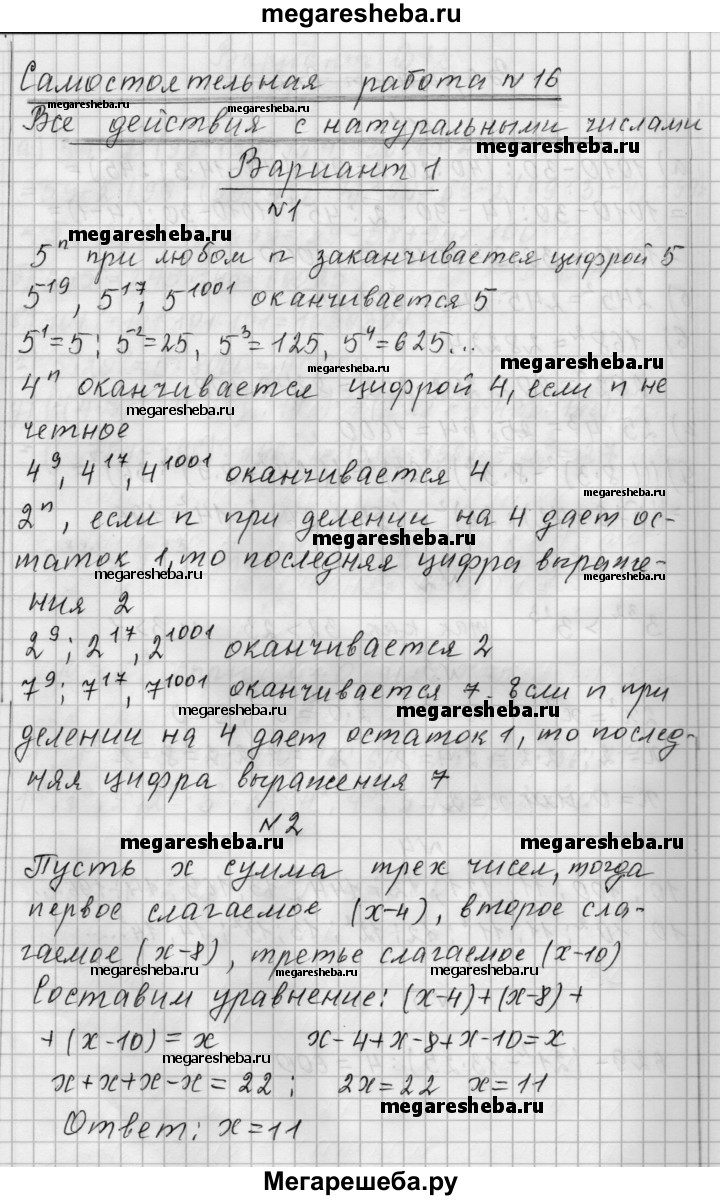 megaresheba.ru
Самостоятельная работа №16
megaresheba.ru megaresheba.ru
Все действия с натуральными числами
megaresheba.ru
Вариант 1
№1
megaresheba.ru
5ⁿ при любом n заканчивается цифрой 5
5¹⁹, 5¹⁷, 5¹⁰⁰¹ оканчивается 5
5¹=5; 5²=25, 5³=125, 5⁴=625...
megaresheba.ru
4ⁿ оканчивается цифрой 4, если n не
megaresheba.ru
четное
4⁹, 4¹⁷, 4¹⁰⁰¹ оканчивается 4
megaresheba.ru
2ⁿ, если n при делении на 4 дает ос-
megaresheba.ru
таток 1, то последняя цифра выраже-
megaresheba.ru megaresheba.ru
ния 2
2⁹; 2¹⁷, 2¹⁰⁰¹ оканчивается 2
megaresheba.ru
7⁹; 7¹⁷, 7¹⁰⁰¹ оканчивается 7. Если n при
megaresheba.ru megaresheba.ru
делении на 4 дает остаток 1, то послед-
няя цифра выражения 7
№2
megaresheba.ru megaresheba.ru
Пусть x сумма трех чисел, тогда
первое слагаемое (x-4), второе сла-
гаемое (x-8), третье слагаемое (x-10)
megaresheba.ru megaresheba.ru megaresheba.ru
Составим уравнение: (x-4)+(x-8)+
+(x-10)=x x-4+x-8+x-10=x
megaresheba.ru
x+x+x-x=22; 2x=22 x=11
megaresheba.ru
Ответ: x=11
Мегарешеба.ру